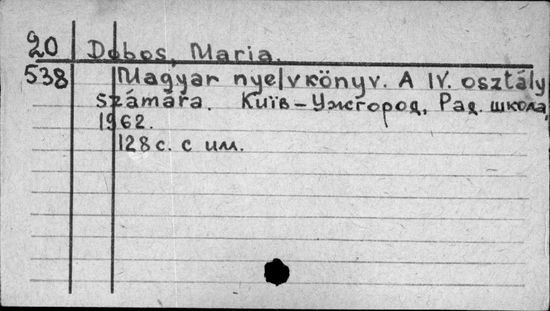 20 Dobos, Maria.
538 Magyar nyelvkönyv. A IV. osztály
számára. Київ-Ужгород, Рад. школа,
1962.
128 с. с ил.